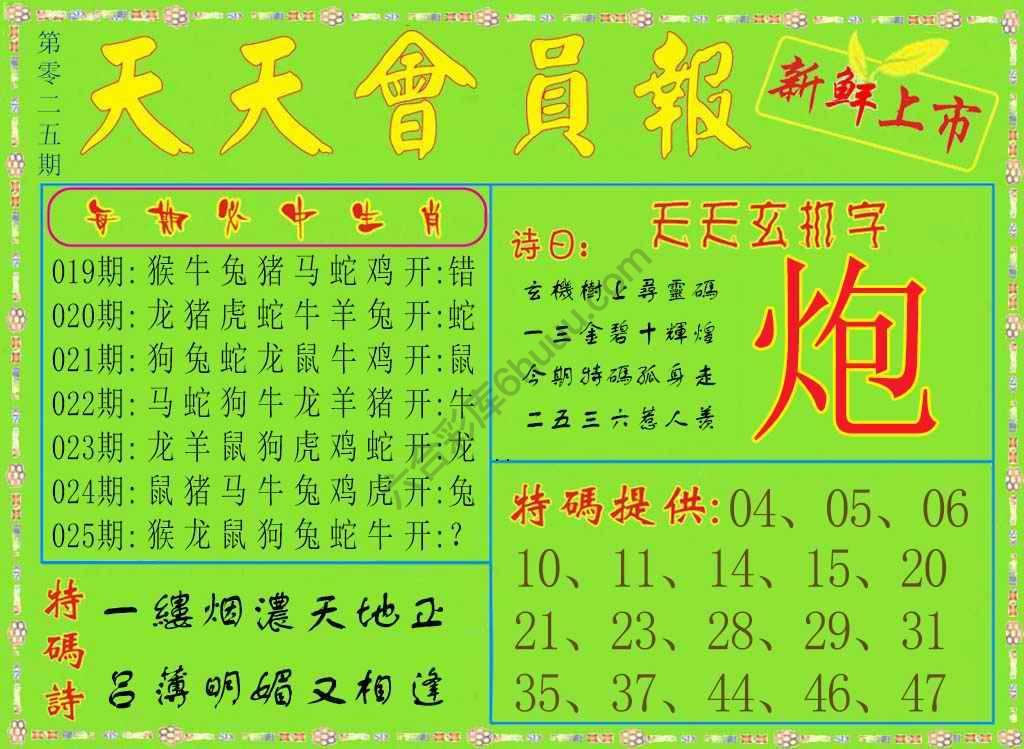 第零二五期
天天會員報
新鮮上市
每期必中生肖
019期: 猴牛兔猪马蛇鸡 开:错
020期: 龙猪虎蛇牛羊兔 开:蛇
021期: 狗兔蛇龙鼠牛鸡 开:鼠
022期: 马蛇狗牛龙羊猪 开:牛
023期: 龙羊鼠狗虎鸡蛇 开:龙
024期: 鼠猪马牛兔鸡虎 开:兔
025期: 猴龙鼠狗兔蛇牛 开:?
天天玄机字
诗曰:
玄機樹上尋靈碼
一三金碧十輝煌
今期特碼孤身走
二五三六惹人羡
炮
特碼提供:04、05、06
10、11、14、15、20
21、23、28、29、31
35、37、44、46、47
特碼詩
一縷烟濃天地正
吕薄明媚又相逢
六合彩库6hucu.com